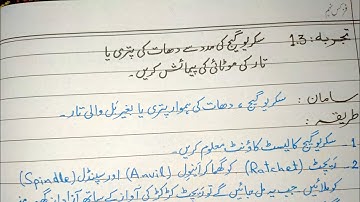 فزکس نہم
تجربہ: 1.3 سکریو گیج کی مدد سے دھات کی پتری یا
تار کی موٹائی کی پیمائش کریں۔
سامان: سکریو گیج، دھات کی ہموار پتری یا بغیر بل والی تار۔
طریقہ:
1۔ سکریو گیج کا لیسٹ کاؤنٹ معلوم کریں۔
2۔ ریچٹ (Ratchet) کو گھما کر اینول (Anvil) اور سپنڈل (Spindle)
کو ملائیں۔ جب یہ مل جائیں گے تو ریچٹ کڑ کڑ کی آواز کے ساتھ آزادانہ گھومنے